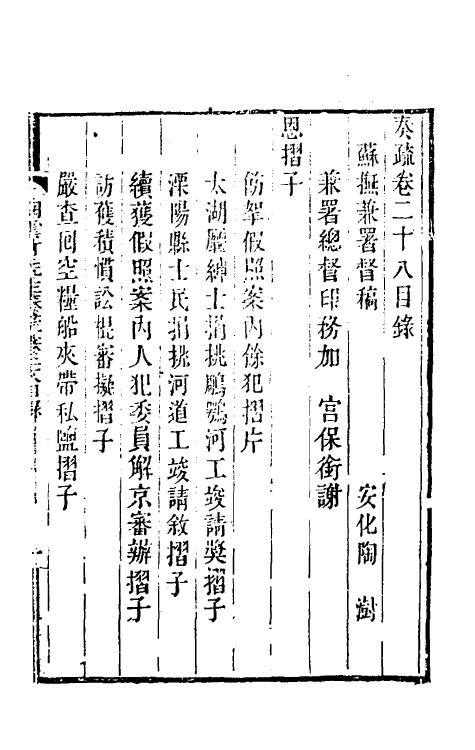 奏疏卷二十八目錄
蘇撫兼署督稿 安化陶 澍
兼署總督印務加 宮保銜謝
恩摺子
飭拏假照案內餘犯摺片
太湖廳紳士捐挑鵰鶚河工竣請獎摺子
溧陽縣士民捐挑河道工竣請敘摺子
續獲假照案內人犯委員解京審辦摺子
訪獲積慣訟棍審擬摺子
嚴查回空糧船夾帶私鹽摺子